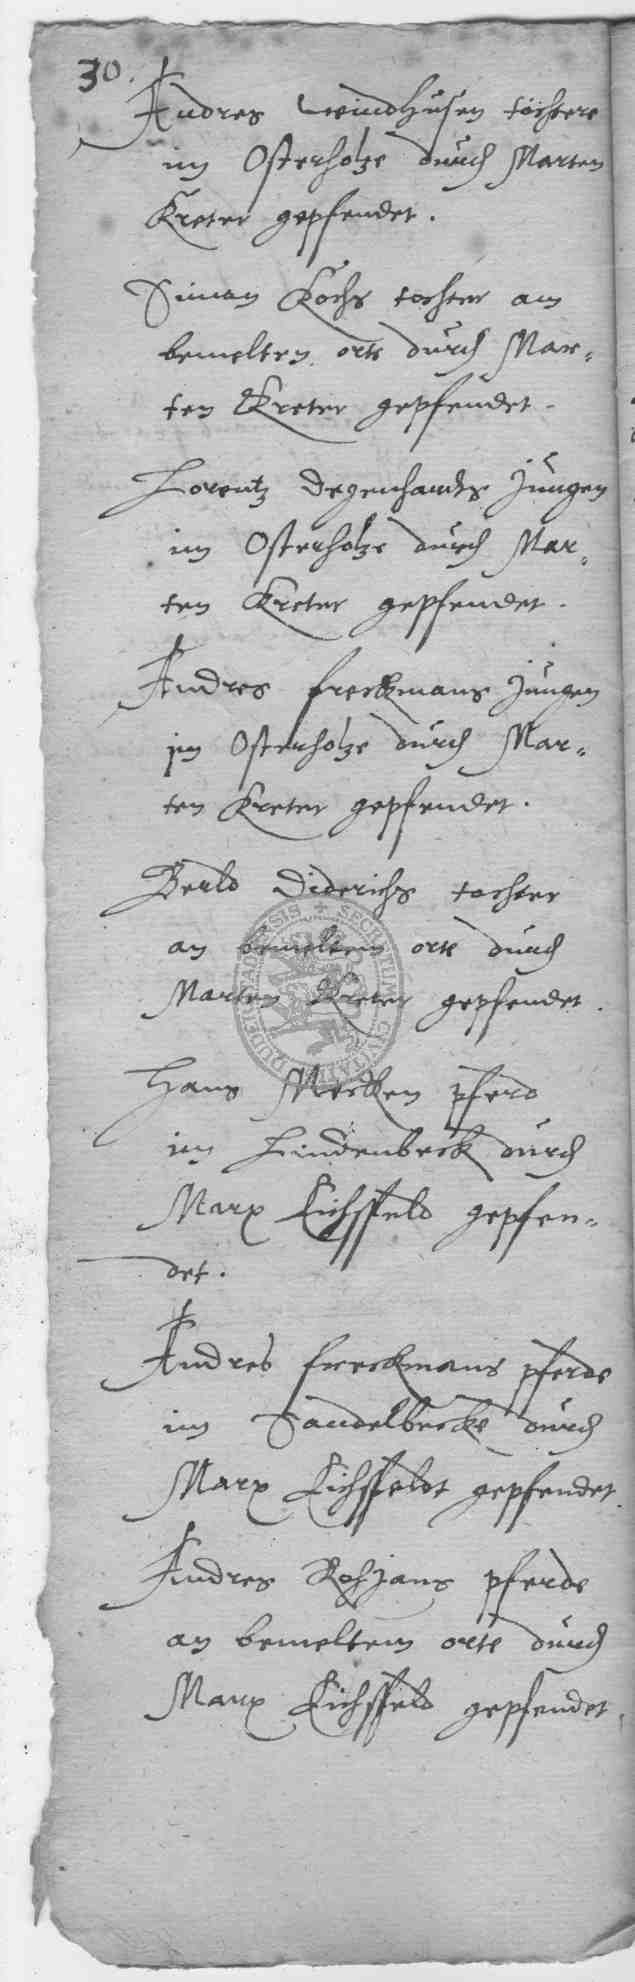 30.
Andres Windhusen tochtere
im Osterholze durch Marten
Kreter gepfendet.
Siman Kochs tochter am
bemelten orte durch Mar-
ten Kreter gepfendet.
Lorentz Degenhardts Jungen
im Osterholze durch Mar-
ten Kreter gepfendet.
Andres freckmans Jungen
jm Osterholze durch Mar-
ten Kreter gepfendet.
Berld Diderichs tochter
an bemeltem orte durch
Marten Kreter gepfendet.
Hans Mecken pferd
im Lindenbeck durch
Marx Eichsfeld gepfen-
det.
Andres freckmans pferde
im Sandelbecke durch
Marx Eichsfeldt gepfendet.
Andres Rohjans pferde
an bemeltem orte durch
Marx Eichsfeld gepfendet.
SECRETUM CIVITATIS